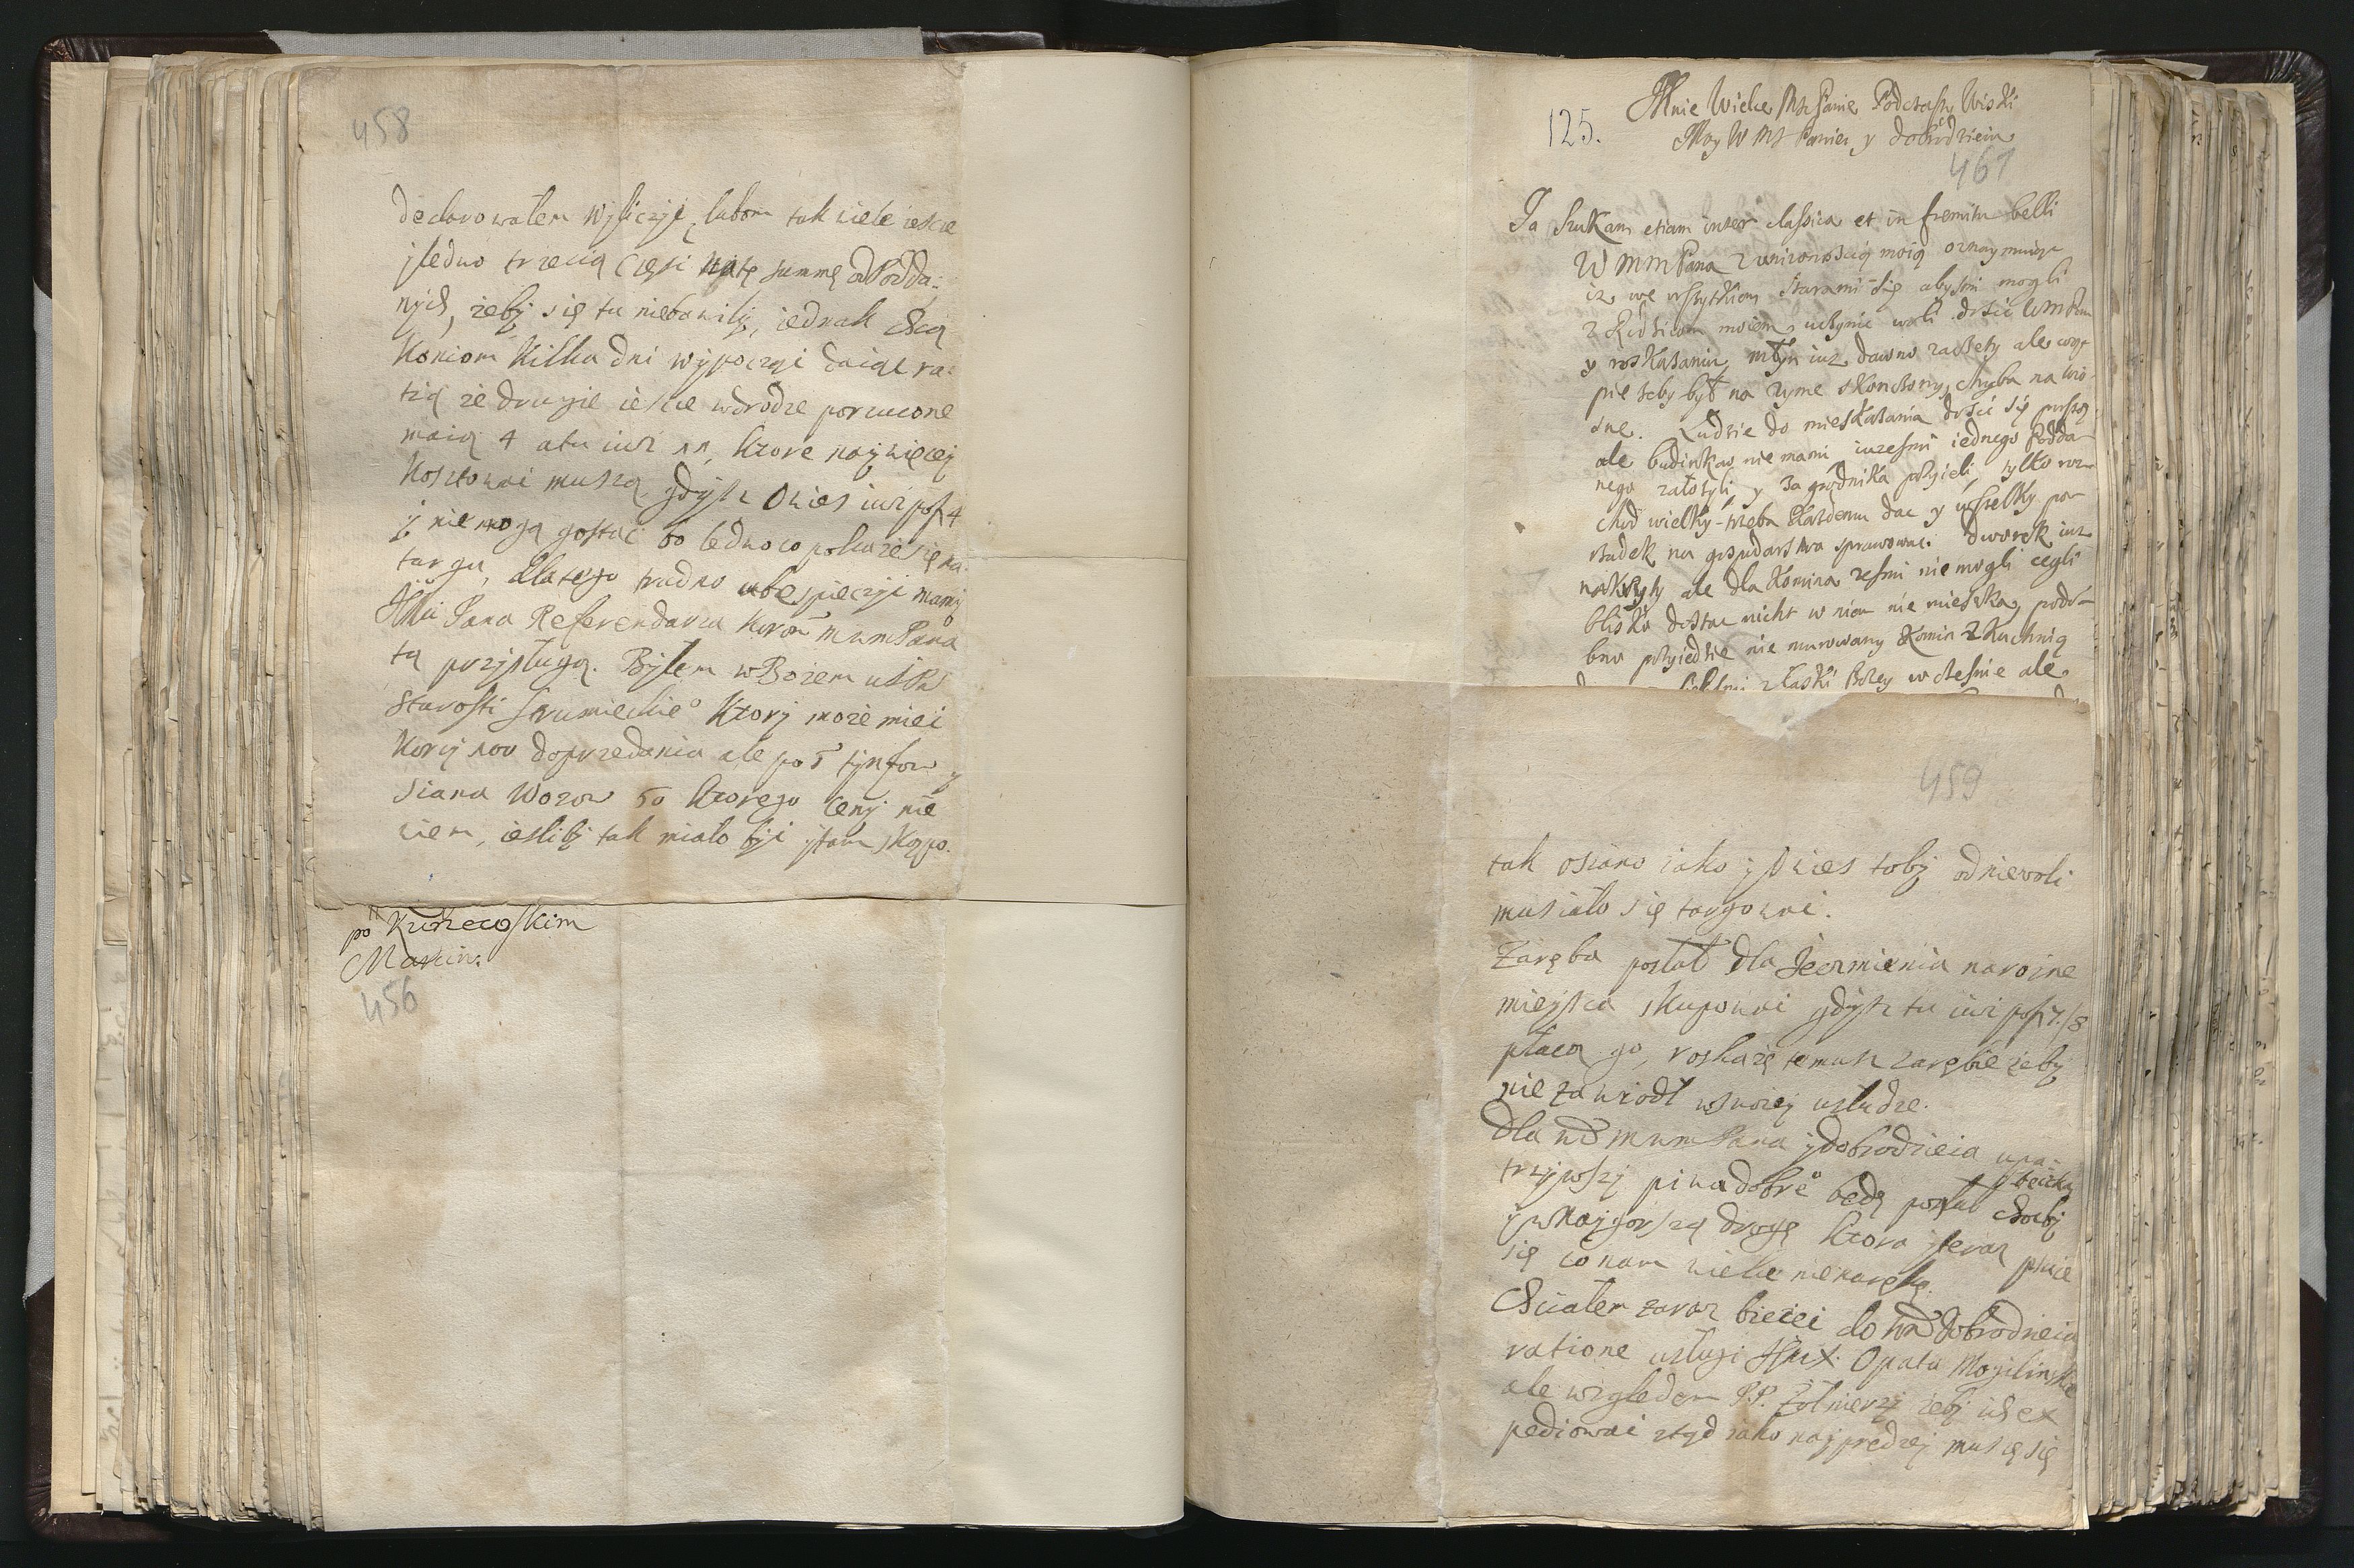 458
declarowałem wyliczyć, lubom tak wiele ieszcze
jedno trzecią część na tę summę od Podda-
nych, żeby się tu niebawily, iednak chcą
Koniom kilka dni wypocząć daiąc ra-
tią że drugie ieszcze w drodze porzucone
maią 4 a tu iuż nn, Które naywięcej
Kosztować muszą, gdysz Owies iuż po ƒ 4
y nie mogą gostać bo ledwo co pokaże się na
targu, dlatego trudno ubespieczyć mamy
JMci Pana Referendarza Koron mwm Pana
tą przysługą. Byłem w Bożem u JP
Starosti Srumieckie° Ktory może mieć
Korcy nov do przedania ale po 5 tynfow y
Siana Wozow 50 Ktorego Ceny nie
wiem, iesliby tak miało być y tam skąpo.
po Kurzewskim
Marcin.
456
125.
Mnie Wielce Mśc Panie Podczaszy Wiski
Moy W Mś Panie y dobrodzieiu
461
Ja szukam etiam inter classica et in fremitu belli
W M M Pana z unizonoscią moią oznaymuię
iz we wszytkiem starami się abyśmi mogli
z Rodzicem moiem uczynic woli dosić WMPana
y roskazaniu, młyn iuz dawno zaczety ale wąt-
pie zeby był na zyme skonczony, chyba na wio-
sne. Ludzie do mieszkania dosić się proszą
ale budinkow nie mami iuzesmi iednego Podda-
nego załozyli y zagrodnika przyieli, tylko roz-
chod wielky trzeba kazdemu dac y wszelky po-
rządek na gospodarstwo sprawowac. Dworek iuz
nakryty ale dla Komina zesmi nie mogli cegli
blisko dostac nicht w niem nie mieszka, podo-
bno przyiedzie nie murowany Komin z Kuchnią
z łaski Bozey wczesnie ale
459
tak osiano iako y Owies toby od niewoli
musiało się targować.
Zaręba posłał dla Jęczmienia na rozne
mieysca skupować gdysz tu iuż po ƒ 7/8
płacą go, roskażę temusz Zarębie żeby
nie zawiodł w swoiej usłudze.
Dla WM mwm Pana y dobrodzieia upa-
trzywszy piwa dobre° beczkę będę posłał choćby
y w naygorszą drogę Ktora teraz psuie
się co nam wielce nie na rękę.
Chciałem zaraz bieżeć do WM dobrodzieia
ratione usługi JMX. Opata Mogilinskie°
ale względem P.P. żołnierzy żeby ich ex-
pediować ztąd iako nayprędzej muszę się